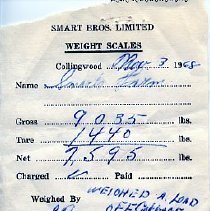 SMART BROS. LIMITED
WEIGHT SCALES
Collingwood Mar 3 1968
Name Smart Farm
Gross 9035 lbs.
Tare 1440 lbs.
Net 7595 lbs.
Charged ✓ Paid
Weighed By WEIGHED A LOAD
OF